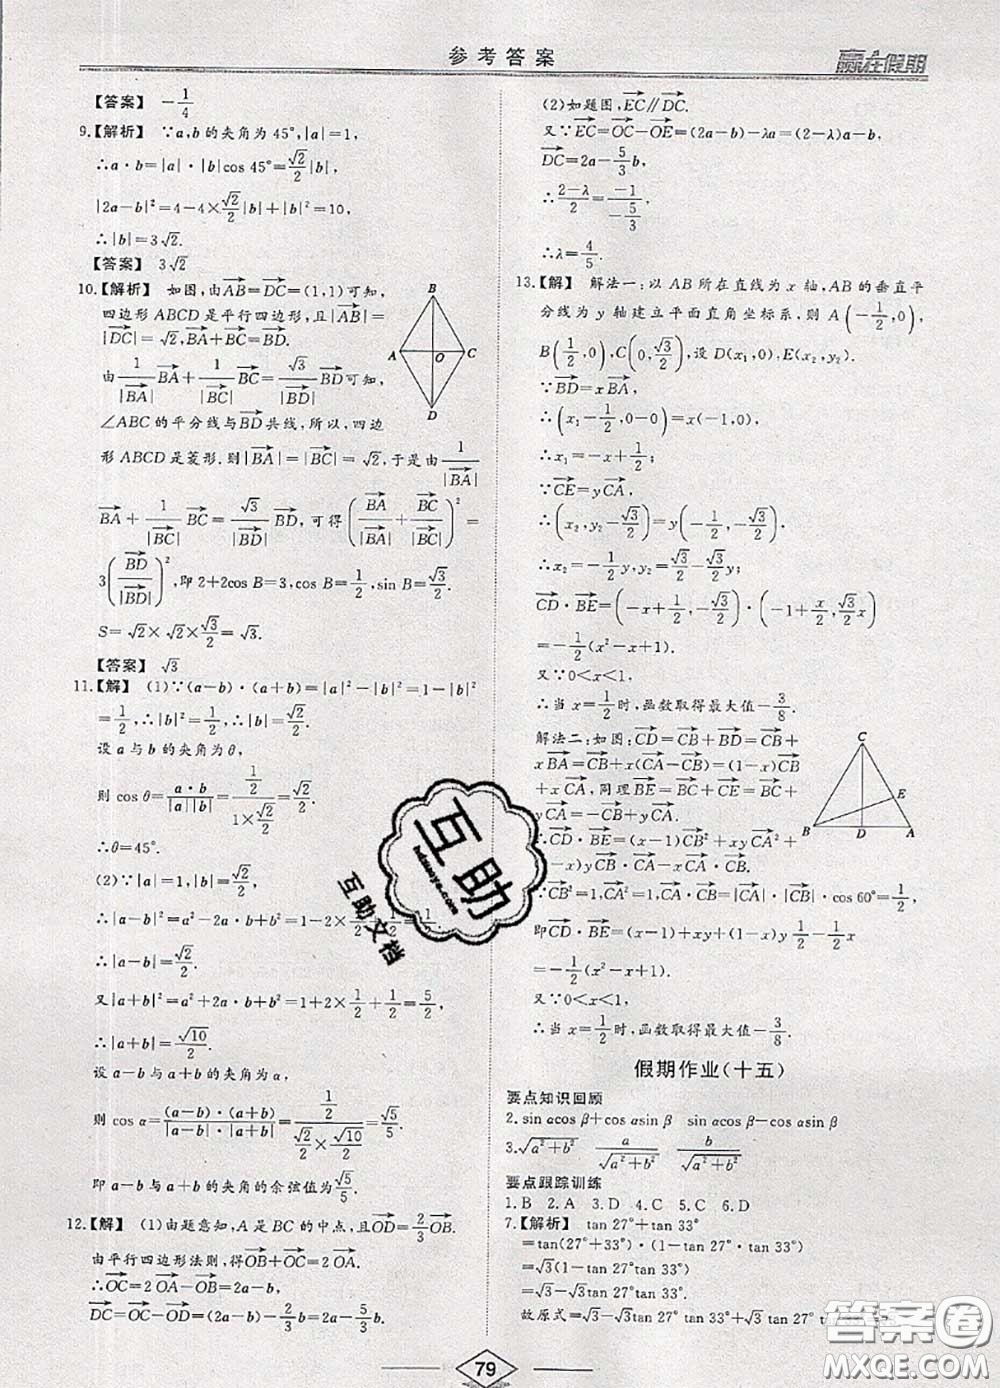 参考答案
赢在假期
【答案】 -1/4
9.【解析】 ∵a,b的夹角为45°,|a|=1,
∴a·b=|a|·|b|cos 45°=√2/2|b|,
|2a-b|²=4-4×√2/2|b|+|b|²=10,
∴|b|=3√2.
【答案】 3√2
10.【解析】 如图,由AB→=DC→=(1,1)可知,
四边形ABCD是平行四边形,且|AB→|=
|DC→|=√2,BA→+BC→=BD→.
由1/|BA→| BA→+1/|BC→| BC→=√3/|BD→| BD→可知
∠ABC的平分线与BD→共线,所以,四边
形ABCD是菱形.则|BA→|=|BC→|=√2,于是由1/|BA→|
BA→+1/|BC→| BC→=√3/|BD→| BD→,可得(BA→/|BA→|+BC→/|BC→|)²=
3(BD→/|BD→|)²,即2+2cos B=3,cos B=1/2,sin B=√3/2.
S=√2×√2×√3/2=√3.
【答案】 √3
B
A
O
C
D
11.【解】 (1)∵(a-b)·(a+b)=|a|²-|b|²=1-|b|²
=1/2,∴|b|²=1/2,∴|b|=√2/2.
设a与b的夹角为θ,
则cos θ=a·b/|a||b|=(1/2)/(1×√2/2)=√2/2.
∴θ=45°.
(2)∵|a|=1,|b|=√2/2,
∴|a-b|²=a²-2a·b+b²=1-2×1/2+1/2=1/2.
∴|a-b|=√2/2.
又|a+b|²=a²+2a·b+b²=1+2×1/2+1/2=5/2.
∴|a+b|=√10/2.
设a-b与a+b的夹角为α,
则cos α=(a-b)·(a+b)/|a-b|·|a+b|=(1/2)/(√2/2×√10/2)=√5/5.
即a-b与a+b的夹角的余弦值为√5/5.
12.【解】 (1)由题意知,A是BC的中点,且OD→=2/3 OB→.
由平行四边形法则,得OB→+OC→=2OA→.
∴OC→=2OA→-OB→=2a-b,
DC→=OC→-OD→=(2a-b)-2/3b=2a-5/3b.
(2)如题图,EC→∥DC→.
又∵EC→=OC→-OE→=(2a-b)-λa=(2-λ)a-b,
DC→=2a-5/3b,
∴(2-λ)/2=-1/(-5/3)
∴λ=4/5.
13.【解】 解法一:以AB所在直线为x轴,AB的垂直平
分线为y轴建立平面直角坐标系,则A(-1/2,0),
B(1/2,0),C(0,√3/2),设D(x₁,0),E(x₂,y₂).
∵BD→=xBA→,
∴(x₁-1/2,0-0)=x(-1,0),
∴x₁=-x+1/2;
∵CE→=yCA→,
∴(x₂,y₂-√3/2)=y(-1/2,-√3/2),
∴x₂=-1/2y,y₂=√3/2-√3/2y;
CD→·BE→=(-x+1/2,-√3/2)·(-1+x/2,√3/2x)
=-1/2(x²-x+1).
又∵0<x<1,
∴当x=1/2时,函数取得最大值-3/8.
解法二:如图:CD→=CB→+BD→=CB→+
xBA→=CB→+x(CA→-CB→)=(1-x)CB→
+xCA→,同理BE→=BC→+CE→=-CB→+
yCA→=-CB→+yCA→.
∴CD→·BE→=(x-1)CB→²+xyCA→²+
(y-xy-x)CB→·CA→-xCB→·CA→.
∵CB→²=1,CA→²=1,CB→·CA→=|CB→|·|CA→|·cos 60°=1/2,
即CD→·BE→=(x-1)+xy+(1-x)y·1/2-1/2x
=-1/2(x²-x+1).
又∵0<x<1,
∴当x=1/2时,函数取得最大值-3/8.
C
E
B
D
A
假期作业(十五)
要点知识回顾
2.sin αcos β+cos αsin β sin αcos β-cos αsin β
3.√(a²+b²) a/√(a²+b²) b/√(a²+b²)
要点跟踪训练
1.B 2.A 3.D 4.C 5.C 6.D
7.【解析】 tan 27°+tan 33°
=tan(27°+33°)·(1-tan 27°tan 33°)
=√3(1-tan 27°tan 33°)
=√3-√3tan 27°tan 33°
故原式=√3-√3tan 27°tan 33°+√3tan 27°tan 33°
79
互助
互助文档
答案圈
MXQE.COM